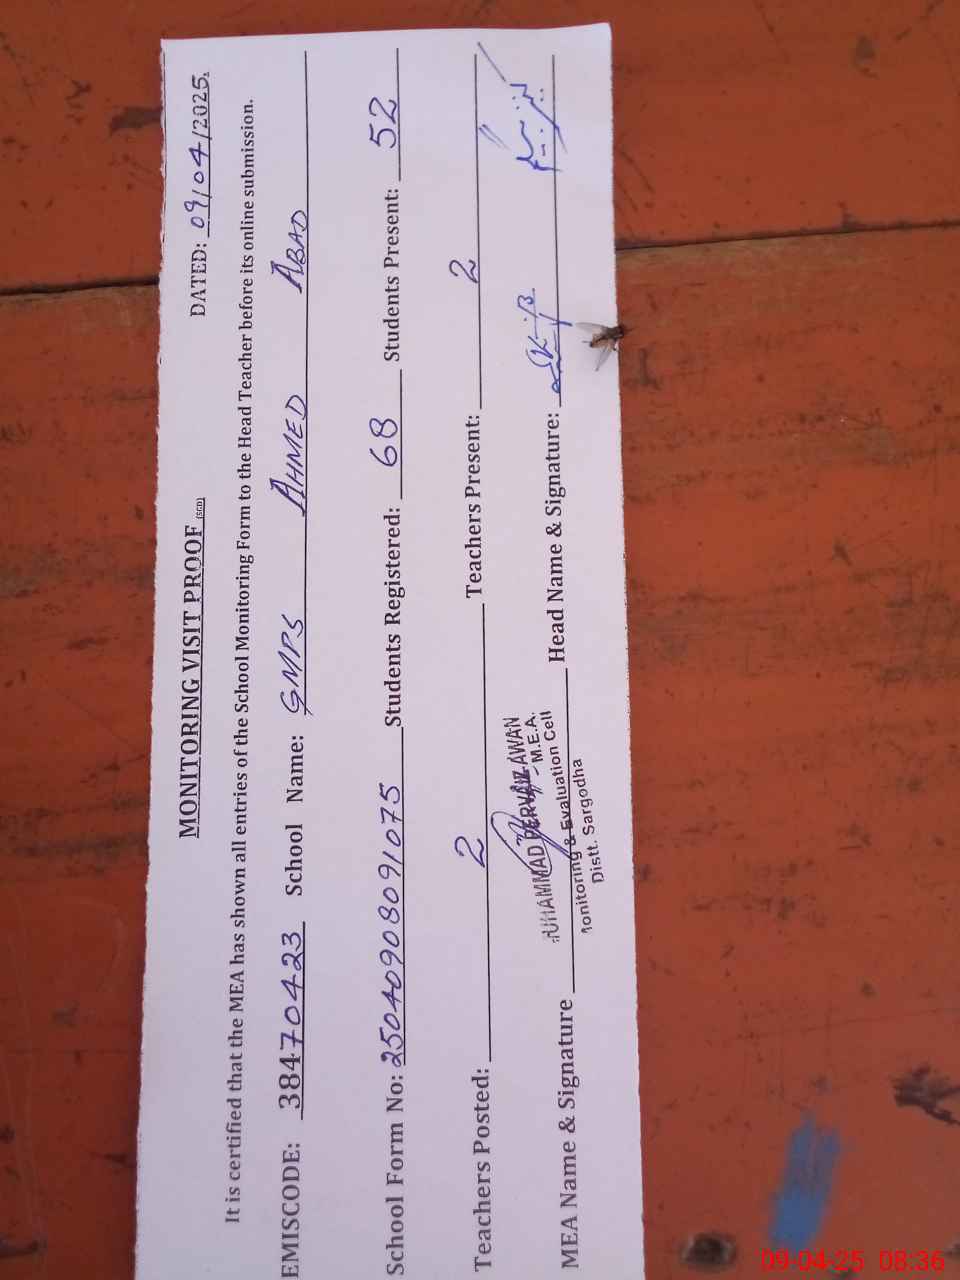 MONITORING VISIT PROOF (SCD) DATED: 09/04/2025.
It is certified that the MEA has shown all entries of the School Monitoring Form to the Head Teacher before its online submission.
EMISCODE: 38470423 School Name: GMPS AHMED ABAD
School Form No: 2504090809 1075 Students Registered: 68 Students Present: 52
Teachers Posted: 2 Teachers Present: 2
MEA Name & Signature Head Name & Signature:
MUHAMMAD PERVAIZ AWAN
M.E.A.
Monitoring & Evaluation Cell
Distt. Sargodha
09-04-25 08:36